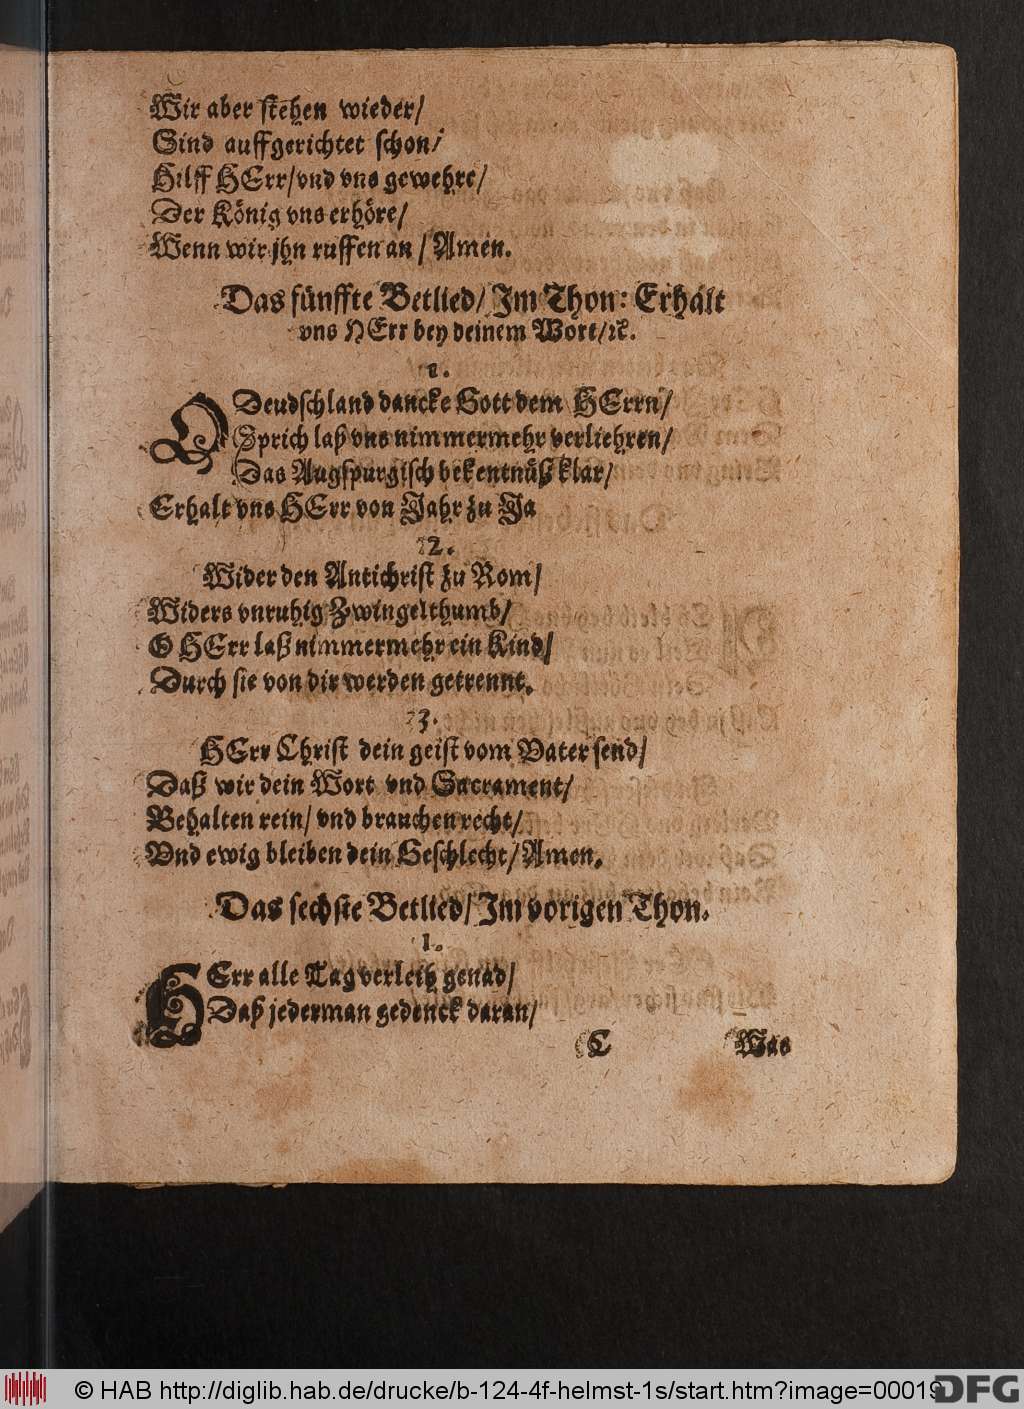 Wir aber ſtehen wieder/
Sind auffgerichtet ſchon/
Hilff HErr/vnd vns gewehre/
Der König vns erhöre/
Wenn wir jhn ruffen an/ Amen.
Das fünffte Betlied/ Im Thon: Erhalt
vns HErr bey deinem Wort/ꝛc.
1.
O Deudſchland dancke Gott dem HErrn/
Sprich laß vns nimmermehr verliehren/
Das Augſpurgiſch bekentnüß klar/
Erhalt vns HErr von Jahr zu Ja
2.
Wider den Antichriſt zu Rom/
Widers vnruhig Zwingelthumb/
O HErr laß nimmermehr ein Kind/
Durch ſie von dir werden getrennt.
3.
HErr Chriſt dein geiſt vom Vater ſend/
Daß wir dein Wort vnd Sacrament/
Behalten rein/ vnd brauchen recht/
Vnd ewig bleiben dein Geſchlecht/ Amen.
Das ſechſte Betlied/ Im vorigen Thon.
1.
HErr alle Tag verleih genad/
Daß jederman gedenck daran/
C Was
© HAB http://diglib.hab.de/drucke/b-124-4f-helmst-1s/start.htm?image=00019
DFG